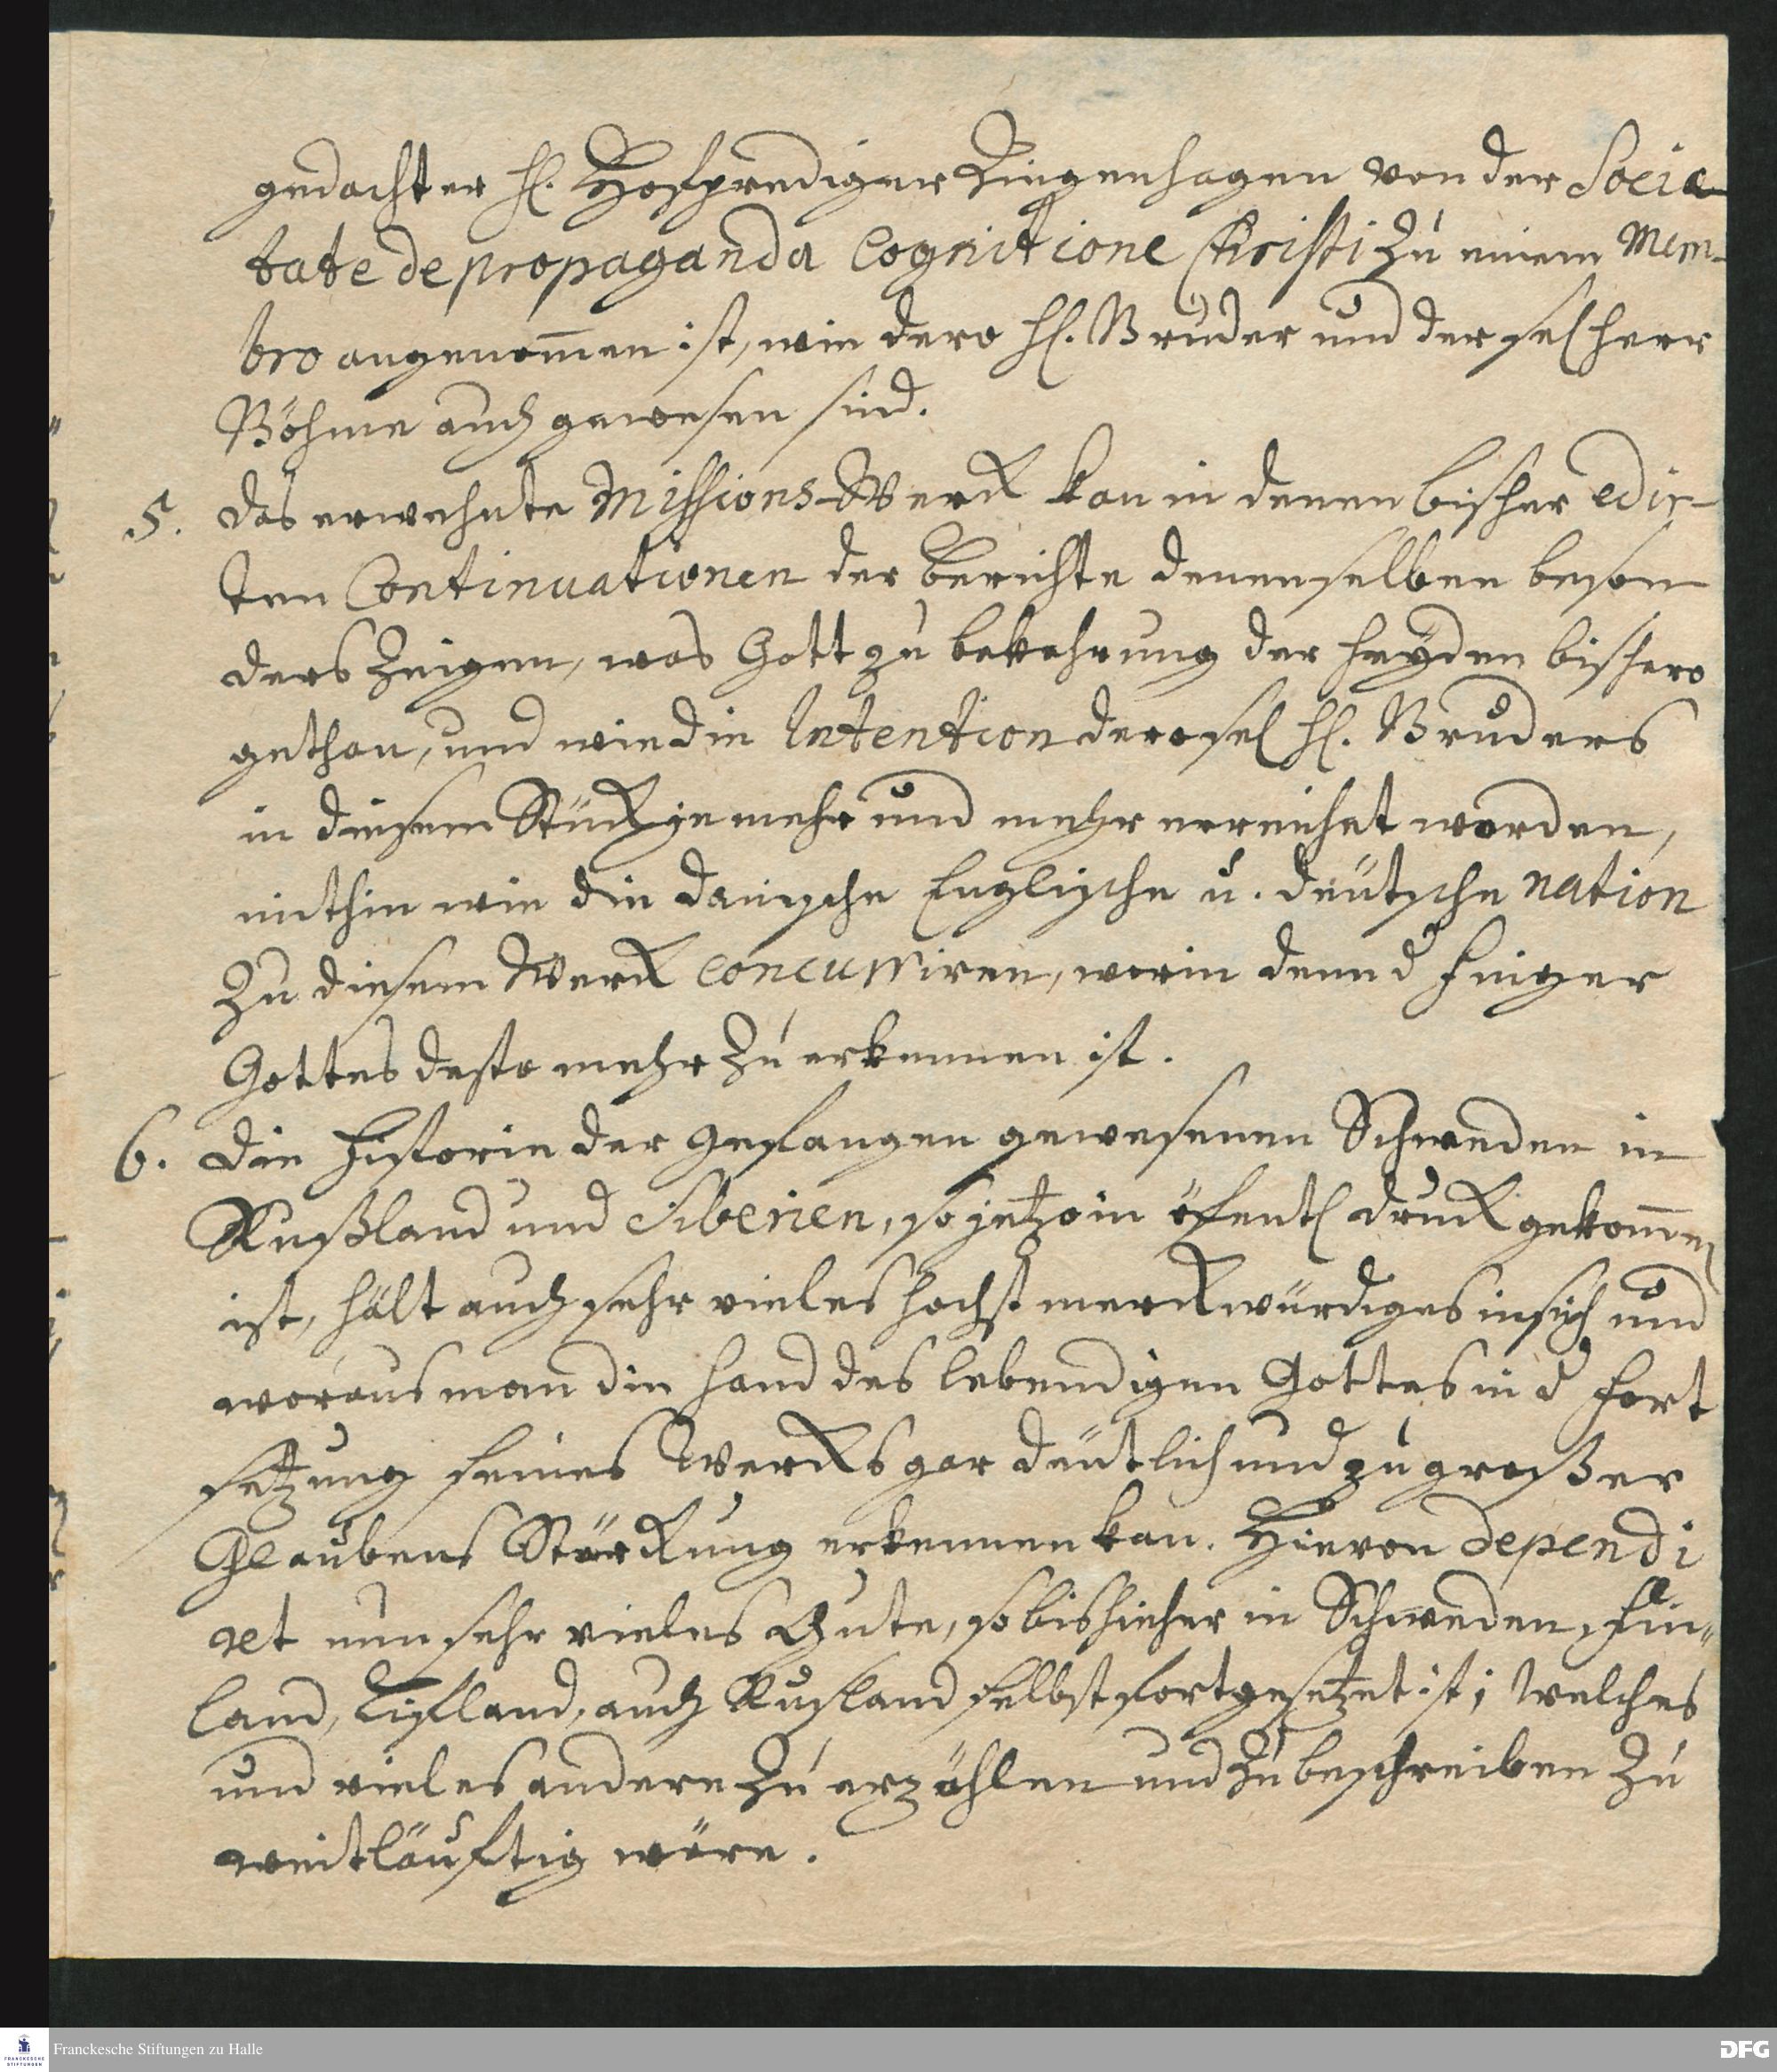 gedachter H. Hofprediger Ziegenhagen von der Socie-
tate de propaganda Cognitione Christi zu einem Mem-
bro angenom̄en ist, wie dero H. Bruder und der sel Herr
Böhme auch gewesen sind.
5. Das erwehnte Missions-Werck kan in denen bisher edir-
ten Continuationen der Berichte denenselben beson-
ders zeigen, was Gott zu bekehrung der Heyden bishero
gethan, und wie die Intention dero sel H. Bruders
in diesem Stück je mehr und mehr erreichet worden,
mithin wie die Dänische Englische u. Deütsche Nation
zu diesem Werck concurriren, worin denn d Finger
Gottes desto mehr zu erkennen ist.
6. Die Historie der gefangen gewesenen Schweden in
Rußland und Siberien, so jetzo in öfentl druck gekom̄en
ist, hält auch sehr vieles höchst merckwürdiges in sich und
woraus man die Hand des lebendigen Gottes in d Fort
setzung seines Wercks gar deütlich und zu großer
Glaubens Stärckung erkennen kan. Hievon dependi
ret nun sehr vieles Gute, so bishieher in Schweden, Fin-
land, Liefland, auch Rusland selbst fortgesetzet ist; welches
und vieles andere zu erzöhlen und zu beschreiben zu
weitläuftig wäre.
Franckesche Stiftungen zu Halle
FRANCKESCHE STIFTUNGEN
DFG